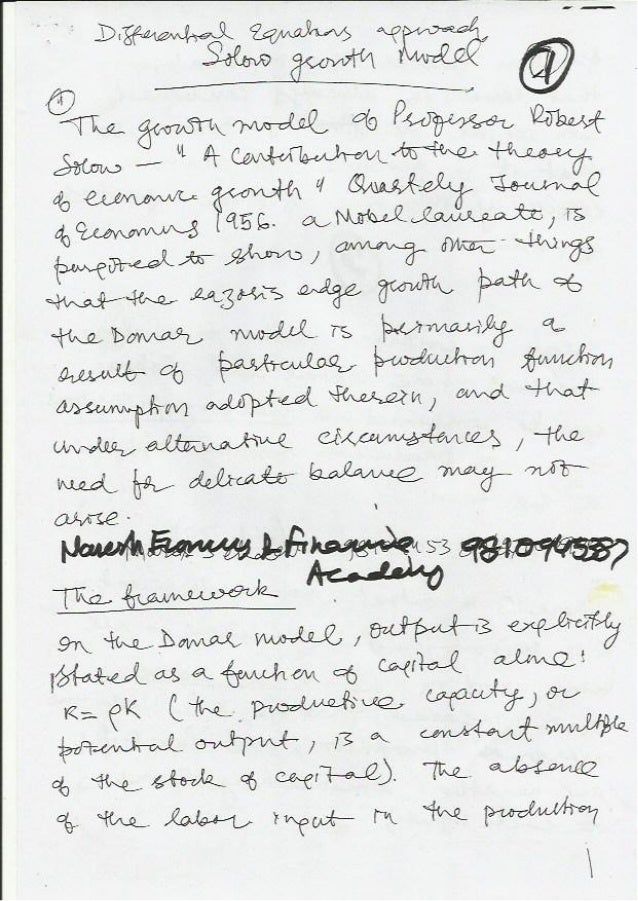 Differential Equations approach
Solow growth Model
1
1
The growth model of Professor Robert
Solow — " A Contribution to the theory
of economic growth " Quartely Journal
of Economics 1956. a Nobel laureate, is
purported to show, among other things
that the razors edge growth path of
the Domar model is primarily a
result of particular production function
assumption adopted therein, and that
under alternative circumstances, the
need for delicate balance may not
arise.
Naresh Economics & Finance 53 981094587
Academy
The framework
In the Domar model, output is explicitly
stated as a function of capital alone:
K = ρK (the productive capacity, or
potential output, is a constant multiple
of the stock of capital). The absence
of the labor input in the production
1